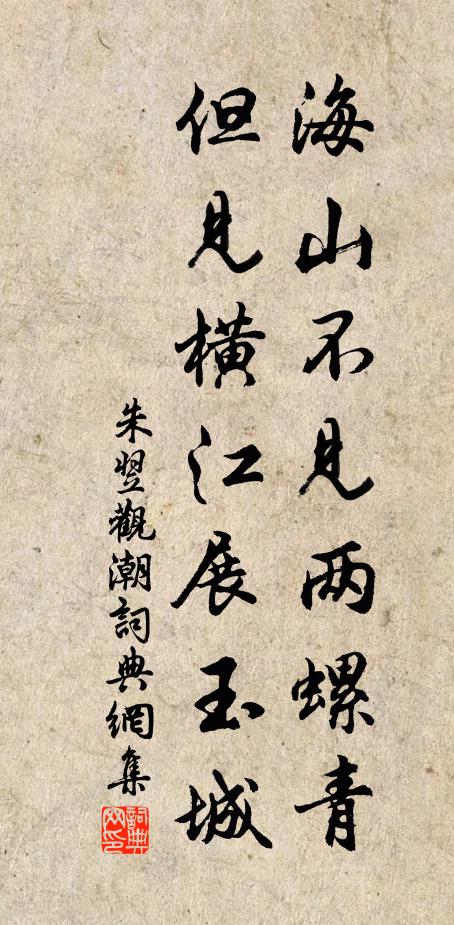 海山不见两螺青
但见橫江展玉城
朱翌觀潮詞典網集
詞典网印